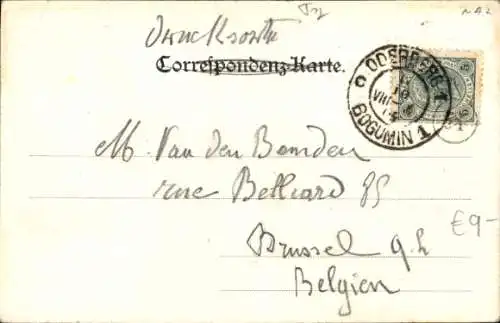 Drucksorte
Correspondenz-Karte.
ODERBERG 1
VIII
BOGUMIN 1
M. Van den Bomden
rue Belliard 85
Brussel
Belgien
€9-